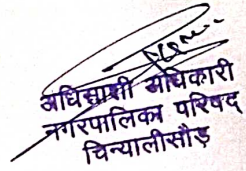 अधिशाशी अधिकारी
नगरपालिका परिषद
चिन्यालीसौड़